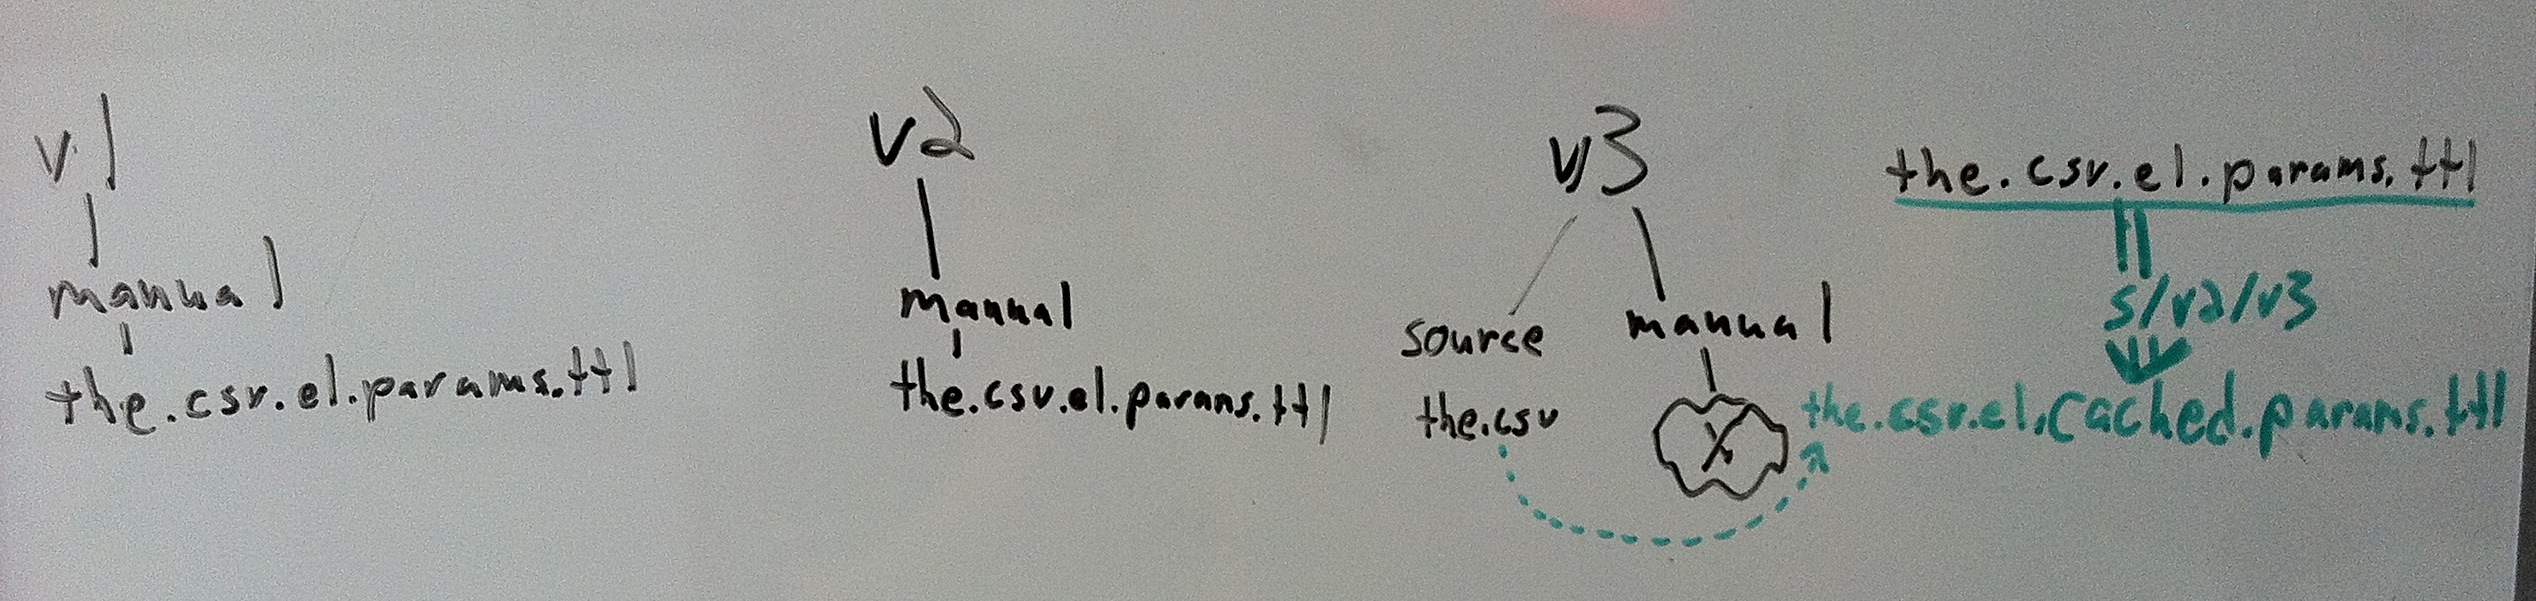 v1
manual
the.csv.el.params.ttl
v2
manual
the.csv.el.params.ttl
v3
source
the.csv
manual
X
the.csv.el.params.ttl
s/v2/v3
the.csv.el.cached.params.ttl